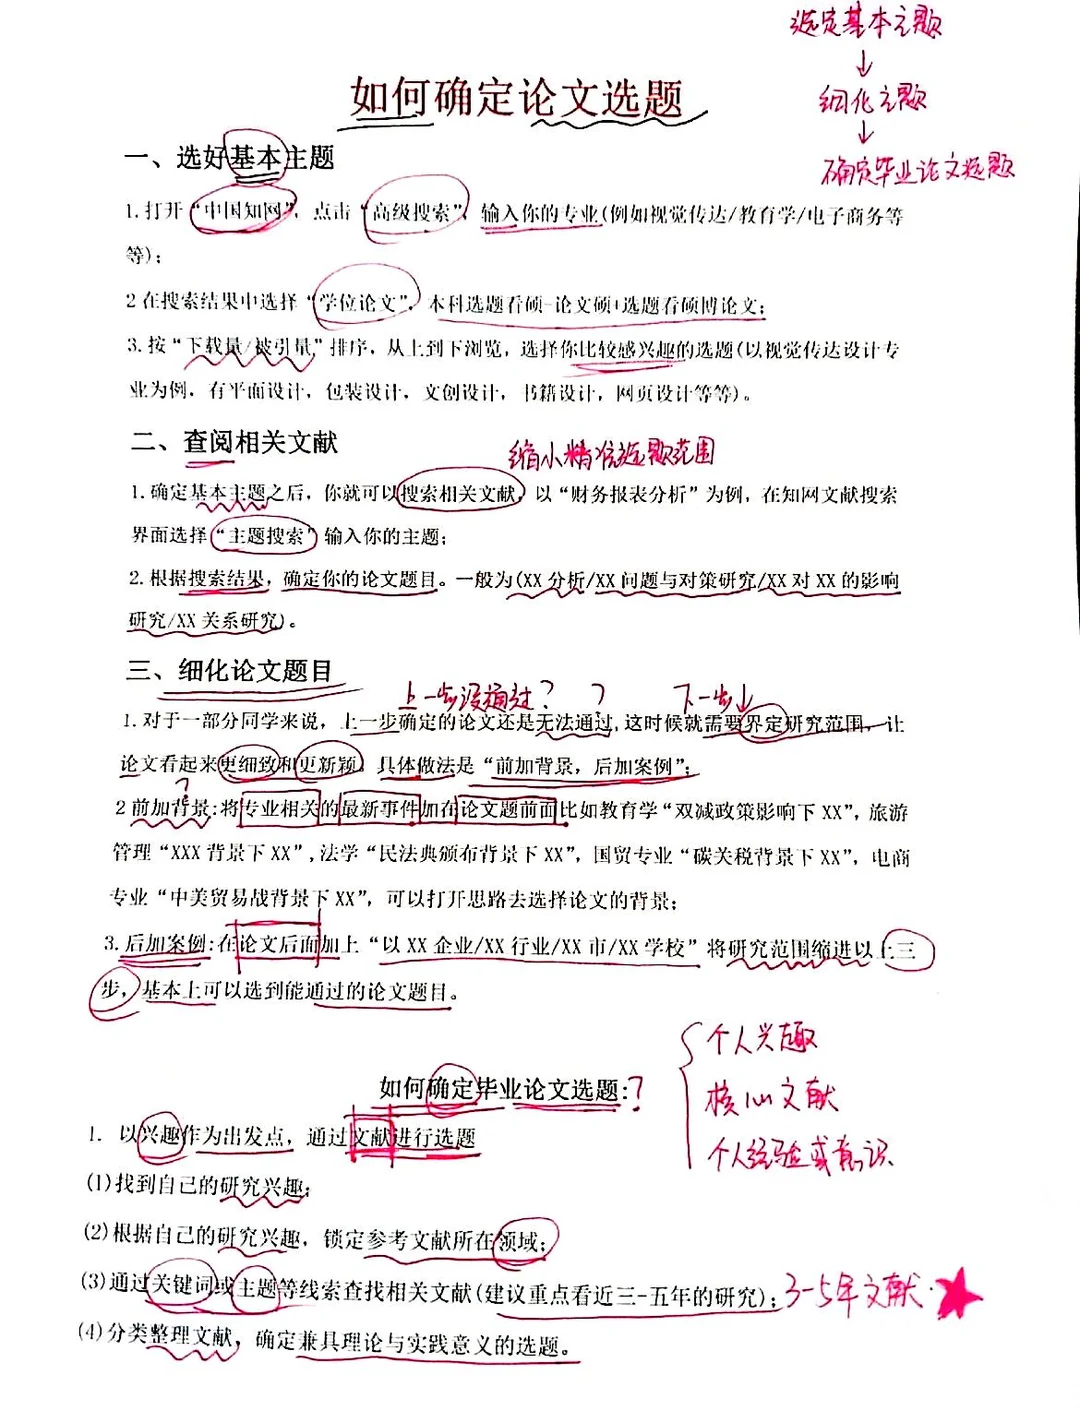 选定基本主题
↓
细化主题
↓
确定毕业论文选题
如何确定论文选题
一、选好基本主题
1.打开“中国知网”，点击“高级搜索”，输入你的专业(例如视觉传达/教育学/电子商务等
等)；
2在搜索结果中选择“学位论文”，本科选题看硕士论文硕士选题看硕博论文；
3.按“下载量/被引量”排序，从上到下浏览，选择你比较感兴趣的选题(以视觉传达设计专
业为例，有平面设计，包装设计，文创设计，书籍设计，网页设计等等)。
二、查阅相关文献
缩小精准选题范围
1.确定基本主题之后，你就可以搜索相关文献，以“财务报表分析”为例，在知网文献搜索
界面选择“主题搜索”输入你的主题；
2.根据搜索结果，确定你的论文题目。一般为(XX分析/XX问题与对策研究/XX对XX的影响
研究/XX关系研究)。
三、细化论文题目
上一步没通过？ ？ 下一步↓
1.对于一部分同学来说，上一步确定的论文还是无法通过,这时候就需要界定研究范围，让
论文看起来更细致和更新颖，具体做法是“前加背景，后加案例”；
?
2前加背景:将专业相关的最新事件加在论文题前面比如教育学“双减政策影响下XX”，旅游
管理“XXX背景下XX”,法学“民法典颁布背景下XX”，国贸专业“碳关税背景下XX”，电商
专业“中美贸易战背景下XX”，可以打开思路去选择论文的背景；
3.后加案例:在论文后面加上“以XX企业/XX行业/XX市/XX学校”将研究范围缩进以上三
步，基本上可以选到能通过的论文题目。
个人兴趣
核心文献
个人经验或意识
如何确定毕业论文选题:?
1. 以兴趣作为出发点，通过文献进行选题
(1)找到自己的研究兴趣；
(2)根据自己的研究兴趣，锁定参考文献所在领域；
(3)通过关键词或主题等线索查找相关文献(建议重点看近三-五年的研究)；3-5年文献.★
(4)分类整理文献，确定兼具理论与实践意义的选题。